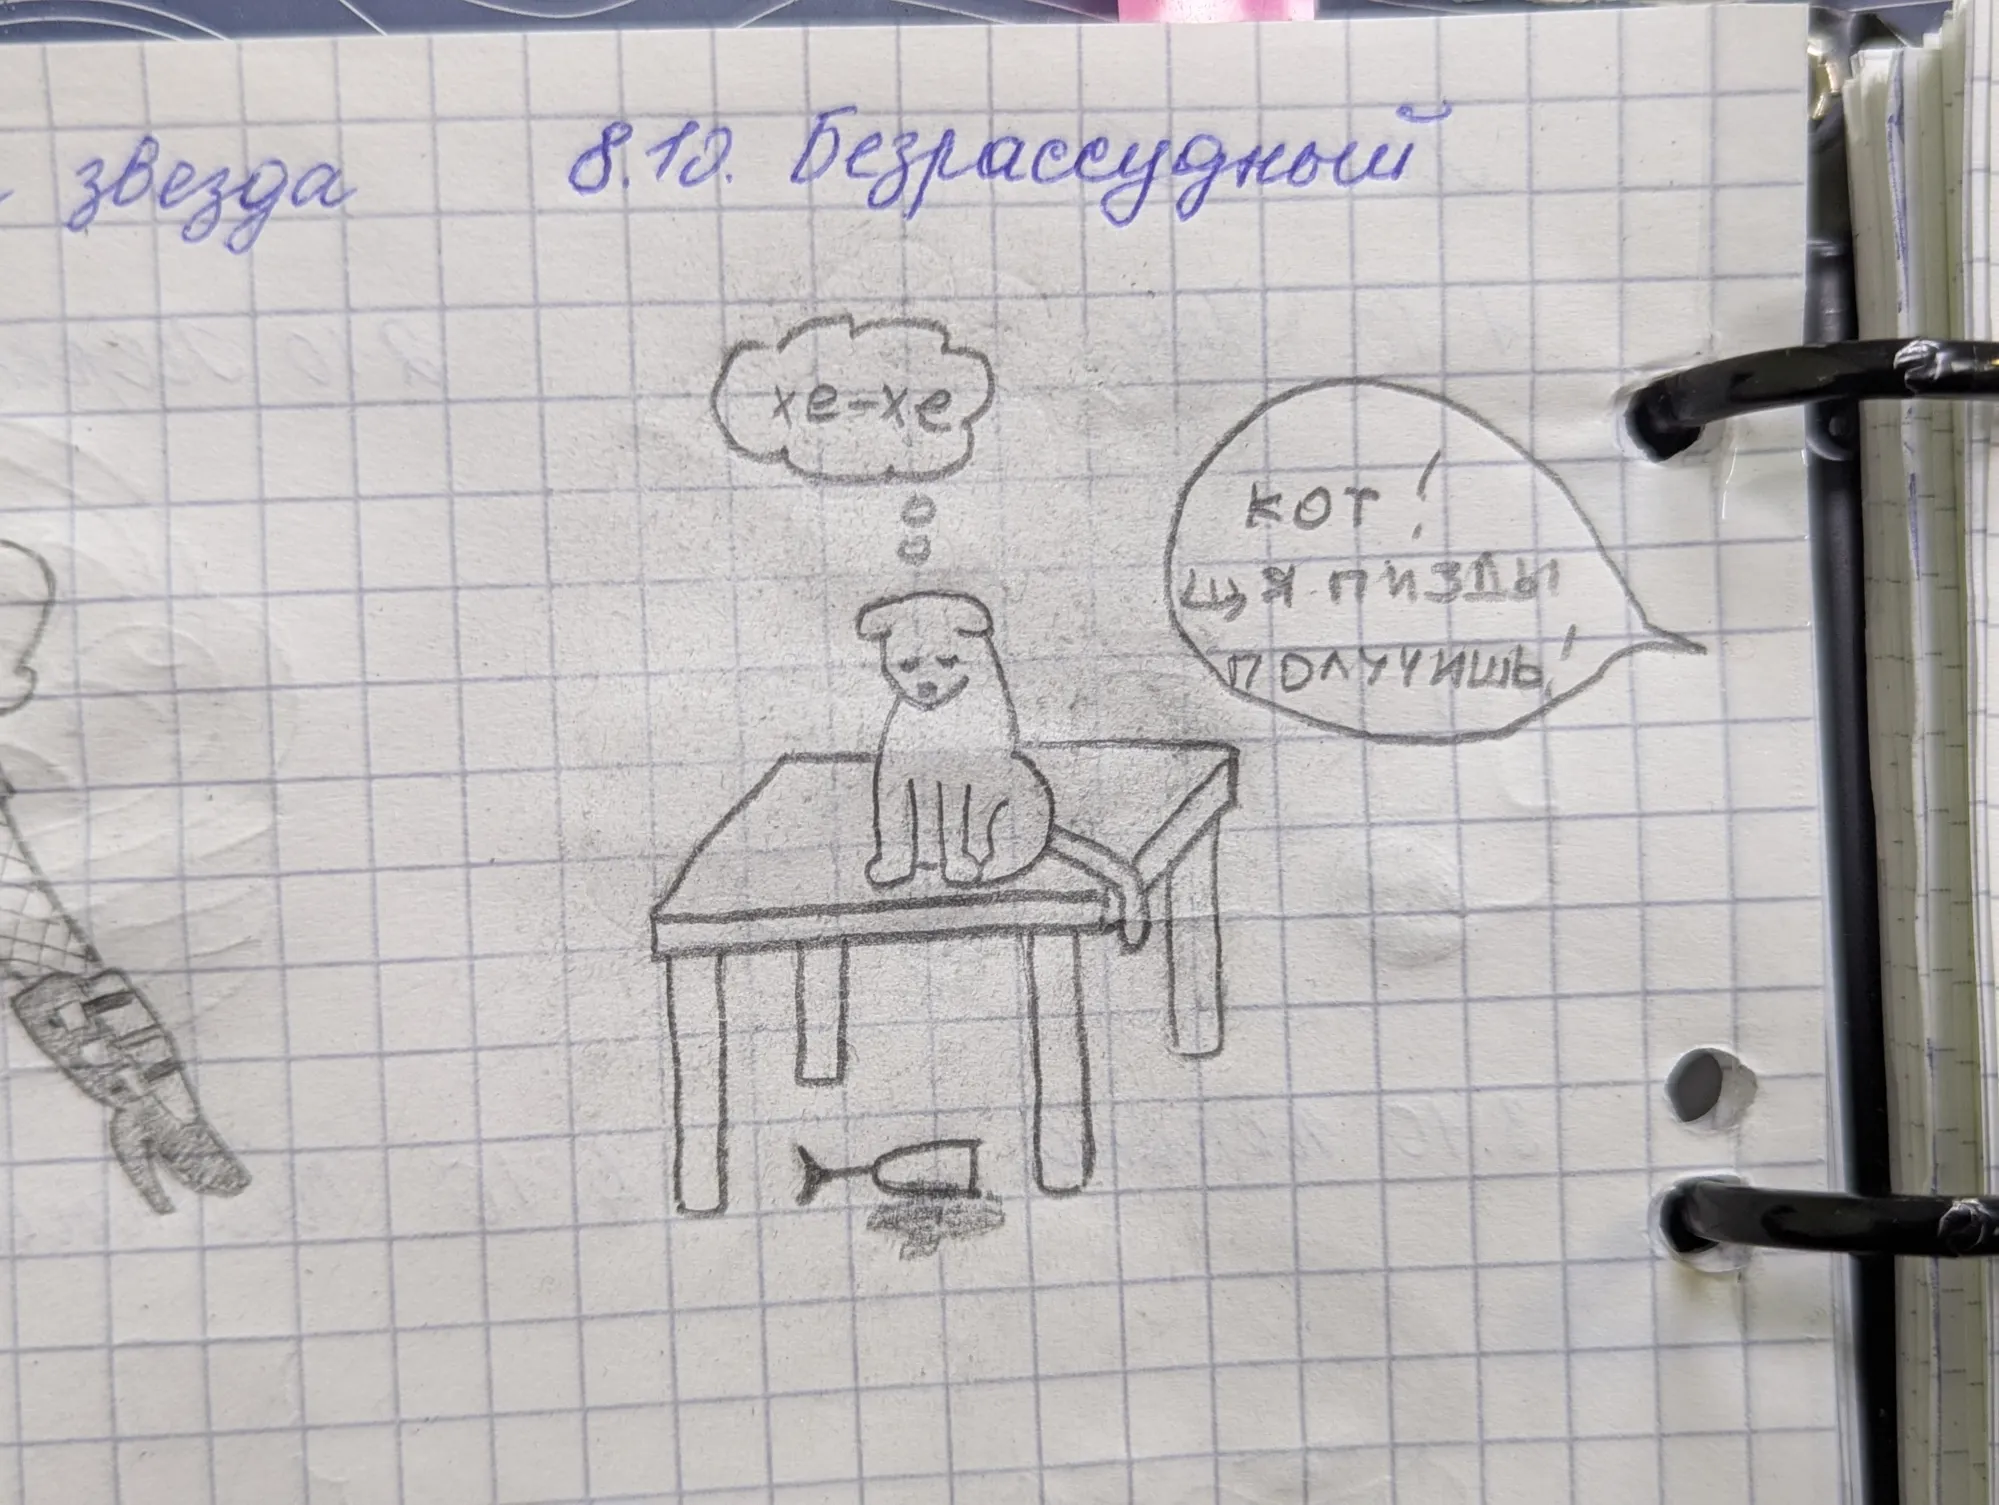 звезда
8.10. Безрассудный
хе-хе
КОТ!
ЩЯ ПИЗДЫ
ПОЛУЧИШЬ!